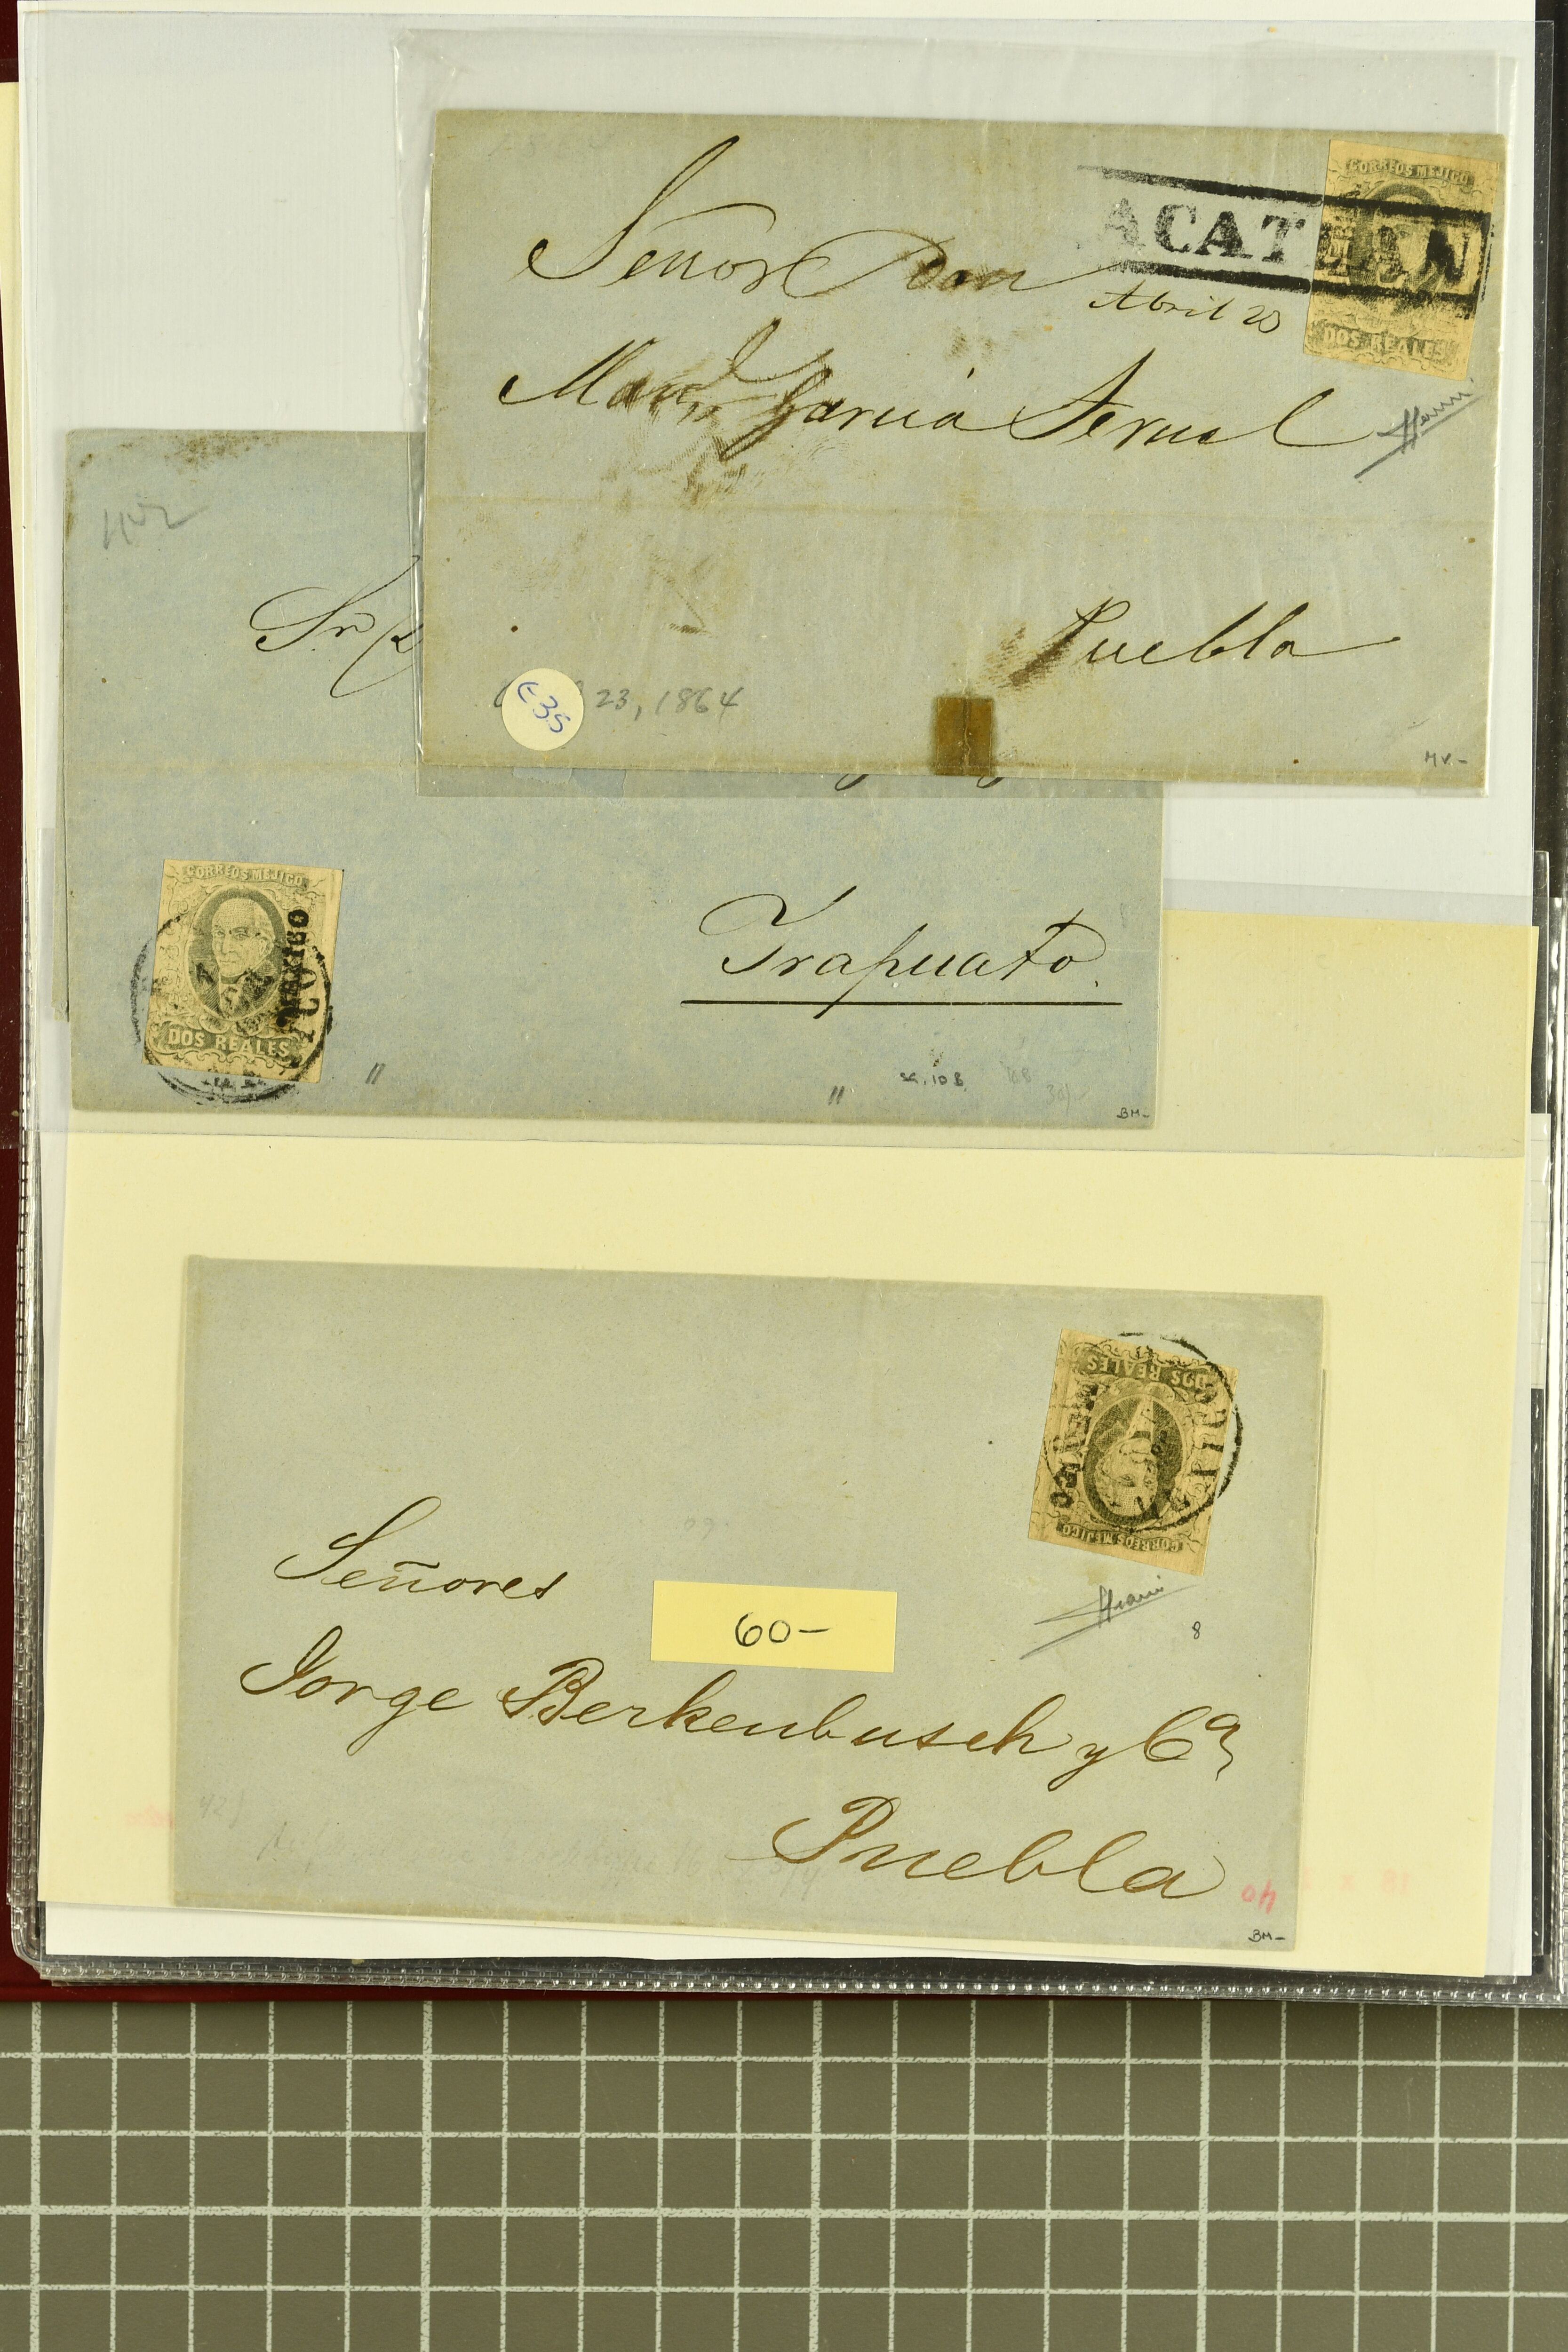 Señor Don
ACATLAN
Abril 20
CORREOS MEJICO
DOS REALES
Man.l Garcia Teruel
Puebla
€35
23, 1864
MV.-
Sr. D
CORREOS MEJICO
MEXICO
DOS REALES
Irapuato.
sc. 10 B
BM-
DOS REALES
CORREOS MEJICO
8
Señores
60-
Jorge Berkenbusch y Ca
Puebla
40
BM-